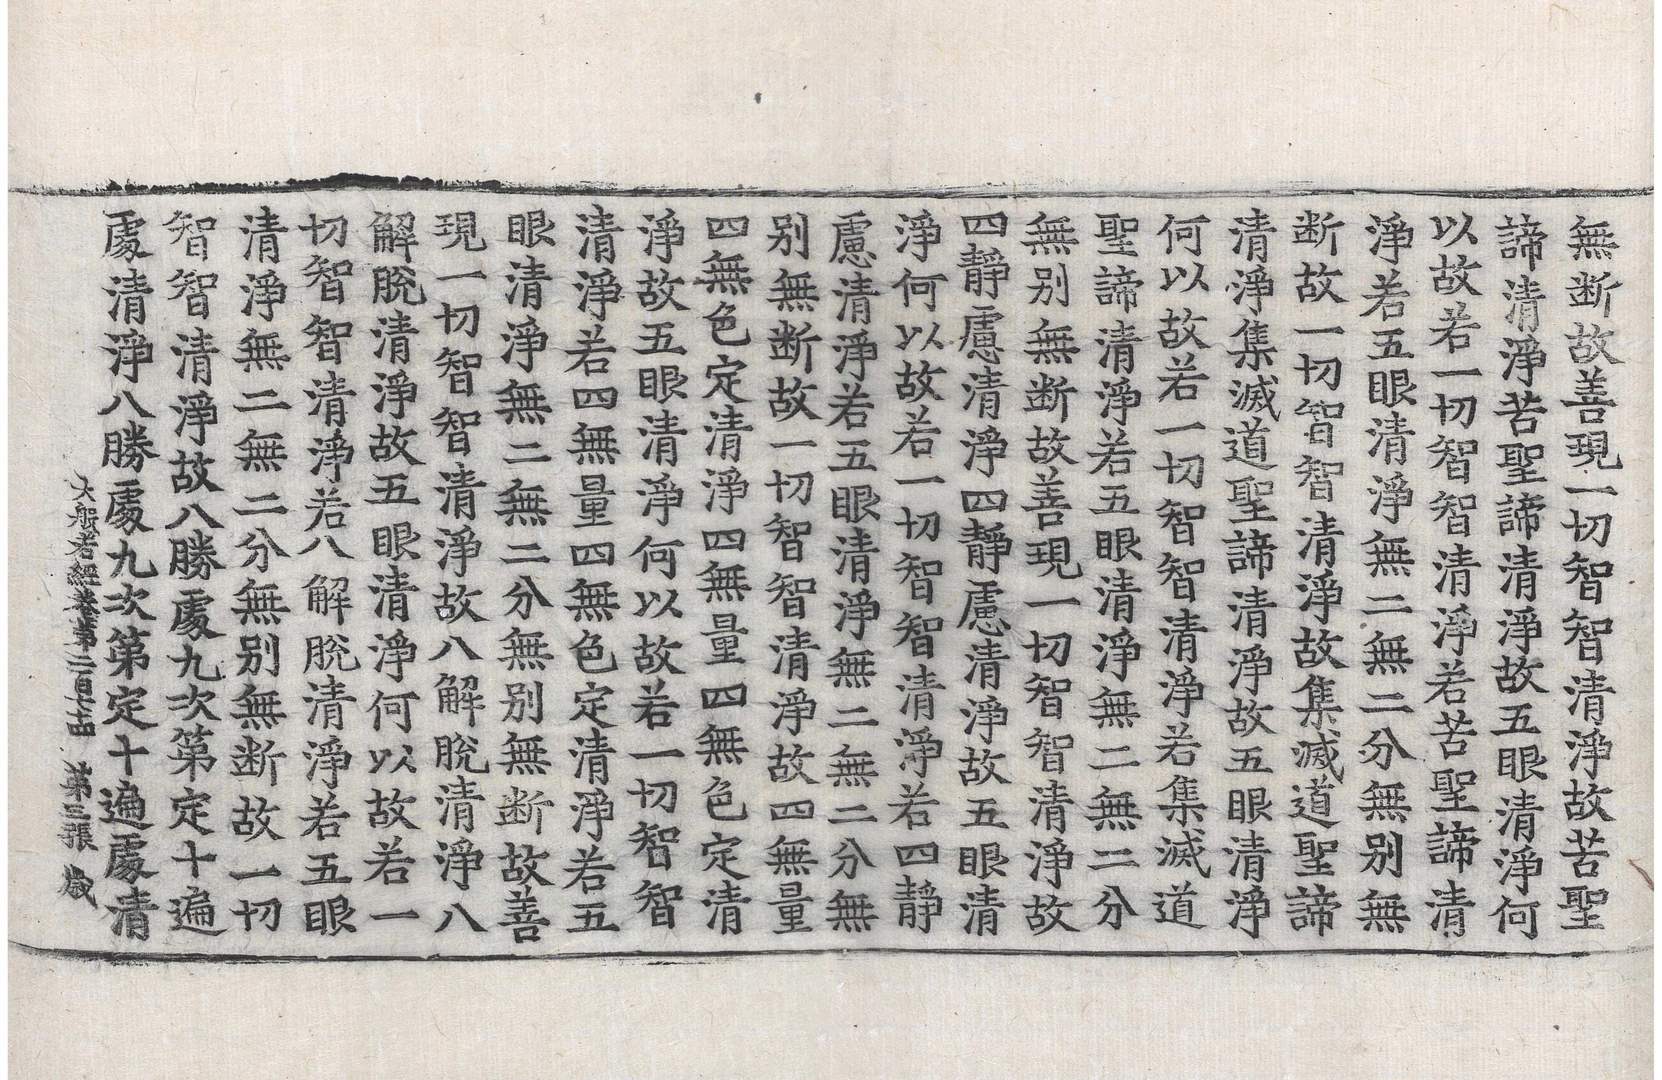 無断故善現一切智智清淨故苦聖
諦清淨苦聖諦清淨故五眼清淨何
以故若一切智智清淨若苦聖諦清
淨若五眼清淨無二無二分無别無
断故一切智智清淨故集滅道聖諦
清淨集滅道聖諦清淨故五眼清淨
何以故若一切智智清淨若集滅道
聖諦清淨若五眼清淨無二無二分
無别無断故善現一切智智清淨故
四靜慮清淨四靜慮清淨故五眼清
淨何以故若一切智智清淨若四靜
慮清淨若五眼清淨無二無二分無
别無断故一切智智清淨故四無量
四無色定清淨四無量四無色定清
淨故五眼清淨何以故若一切智智
清淨若四無量四無色定清淨若五
眼清淨無二無二分無别無断故善
現一切智智清淨故八解脫清淨八
解脫清淨故五眼清淨何以故若一
切智智清淨若八解脫清淨若五眼
清淨無二無二分無别無断故一切
智智清淨故八勝處九次第定十遍
處清淨八勝處九次第定十遍處清
大般若經卷第二百七十四 第三張 歲